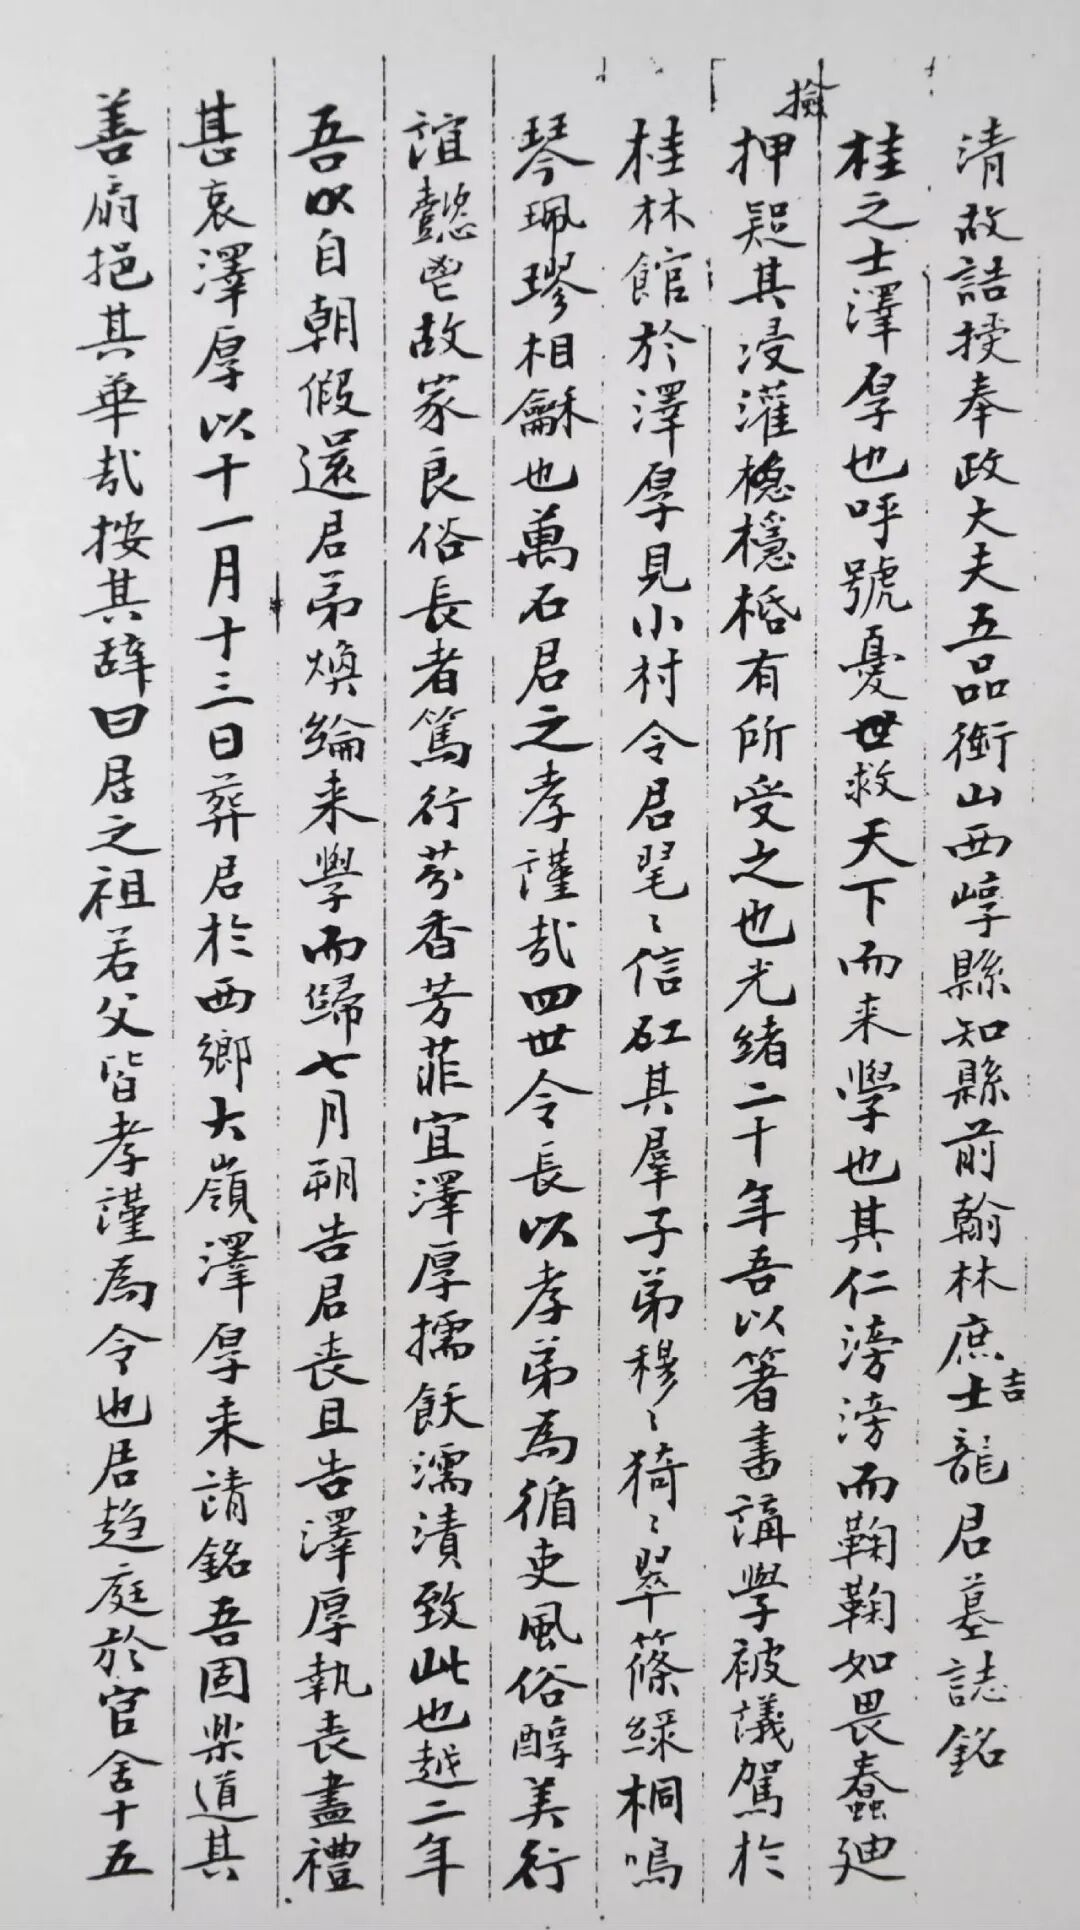 清故誥授奉政大夫五品銜山西崞縣知縣前翰林庶吉士龍君墓誌銘
桂之士澤厚也呼號憂世救天下而来學也其仁滂滂而鞠鞠如畏蠚廸
撿押疑其浸灌檼檃桰有所受之也光緒二十年吾以箸書講學被議駕於
桂林館於澤厚見小村令君毣〻信矼其羣子弟穆〻猗〻翠篠緑桐鳴
琴珮璆相龢也萬石君之孝謹哉四世令長以孝弟為循吏風俗醇美行
誼懿鬯故家良俗長者篤行芬香芳菲宜澤厚擩飫濡漬致此也越二年
吾以自朝假還君弟煥綸来學而歸七月朔告君喪且告澤厚執喪盡禮
甚哀澤厚以十一月十三日葬君於西鄉大嶺澤厚来請銘吾固樂道其
善扇挹其華哉按其辭曰君之祖若父皆孝謹為令也居趨庭於官舍十五